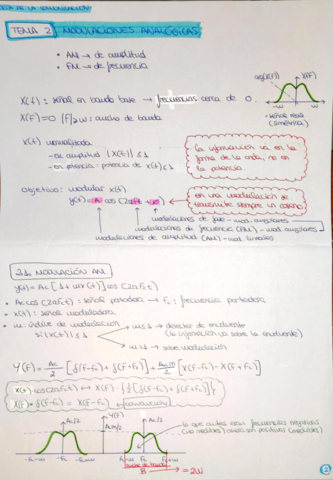 TEMA 2 MODULACIONES ANALÓGICAS
• AM → de amplitud
• FM → de frecuencia
X(t): señal en banda base → frecuencias cerca de 0.
X(F)=0 |F|>w: ancho de banda
arg(X(F)) X(F)
-w w
- señal real
(simétrica)
x(t) normalizada
- en amplitud |X(t)| ≤ 1
- en potencia: potencia de x(t) ≤ 1
la información va en la
forma de la onda, no en
la potencia
Objetivo: modular x(t)
en una modulación se
transmite siempre un coseno
modulaciones de fase - mod. angulares
modulaciones de frecuencia (FM) - mod. angulares
modulaciones de amplitud (AM) - mod. lineales
2.1. MODULACIÓN AM
y(t) = Ac [1 + m x(t)] cos(2πFct)
• Ac cos(2πFct): señal portadora → Fc: frecuencia portadora
• x(t): señal moduladora
• m: índice de modulación
si |x(t)| ≤ 1
m ≤ 1 → detector de envolvente
(la información va sobre la envolvente)
m > 1 → sobremodulación
Y(F) = Ac/2 [δ(F-Fc) + δ(F+Fc)] + Ac m/2 [X(F-Fc) + X(F+Fc)]
X(t)·cos(2πFct) ↔ X(F) * {½[δ(F-Fc) + δ(F+Fc)]}
X(F) * δ(F-Fc) = X(F-Fc)
Y(F)
Ac/2
Ac m/2
Ac/2
-Fc -Fc+w
Fc
lo que antes eran frecuencias negativas
ahora son positivas
ancho de banda
B = 2W